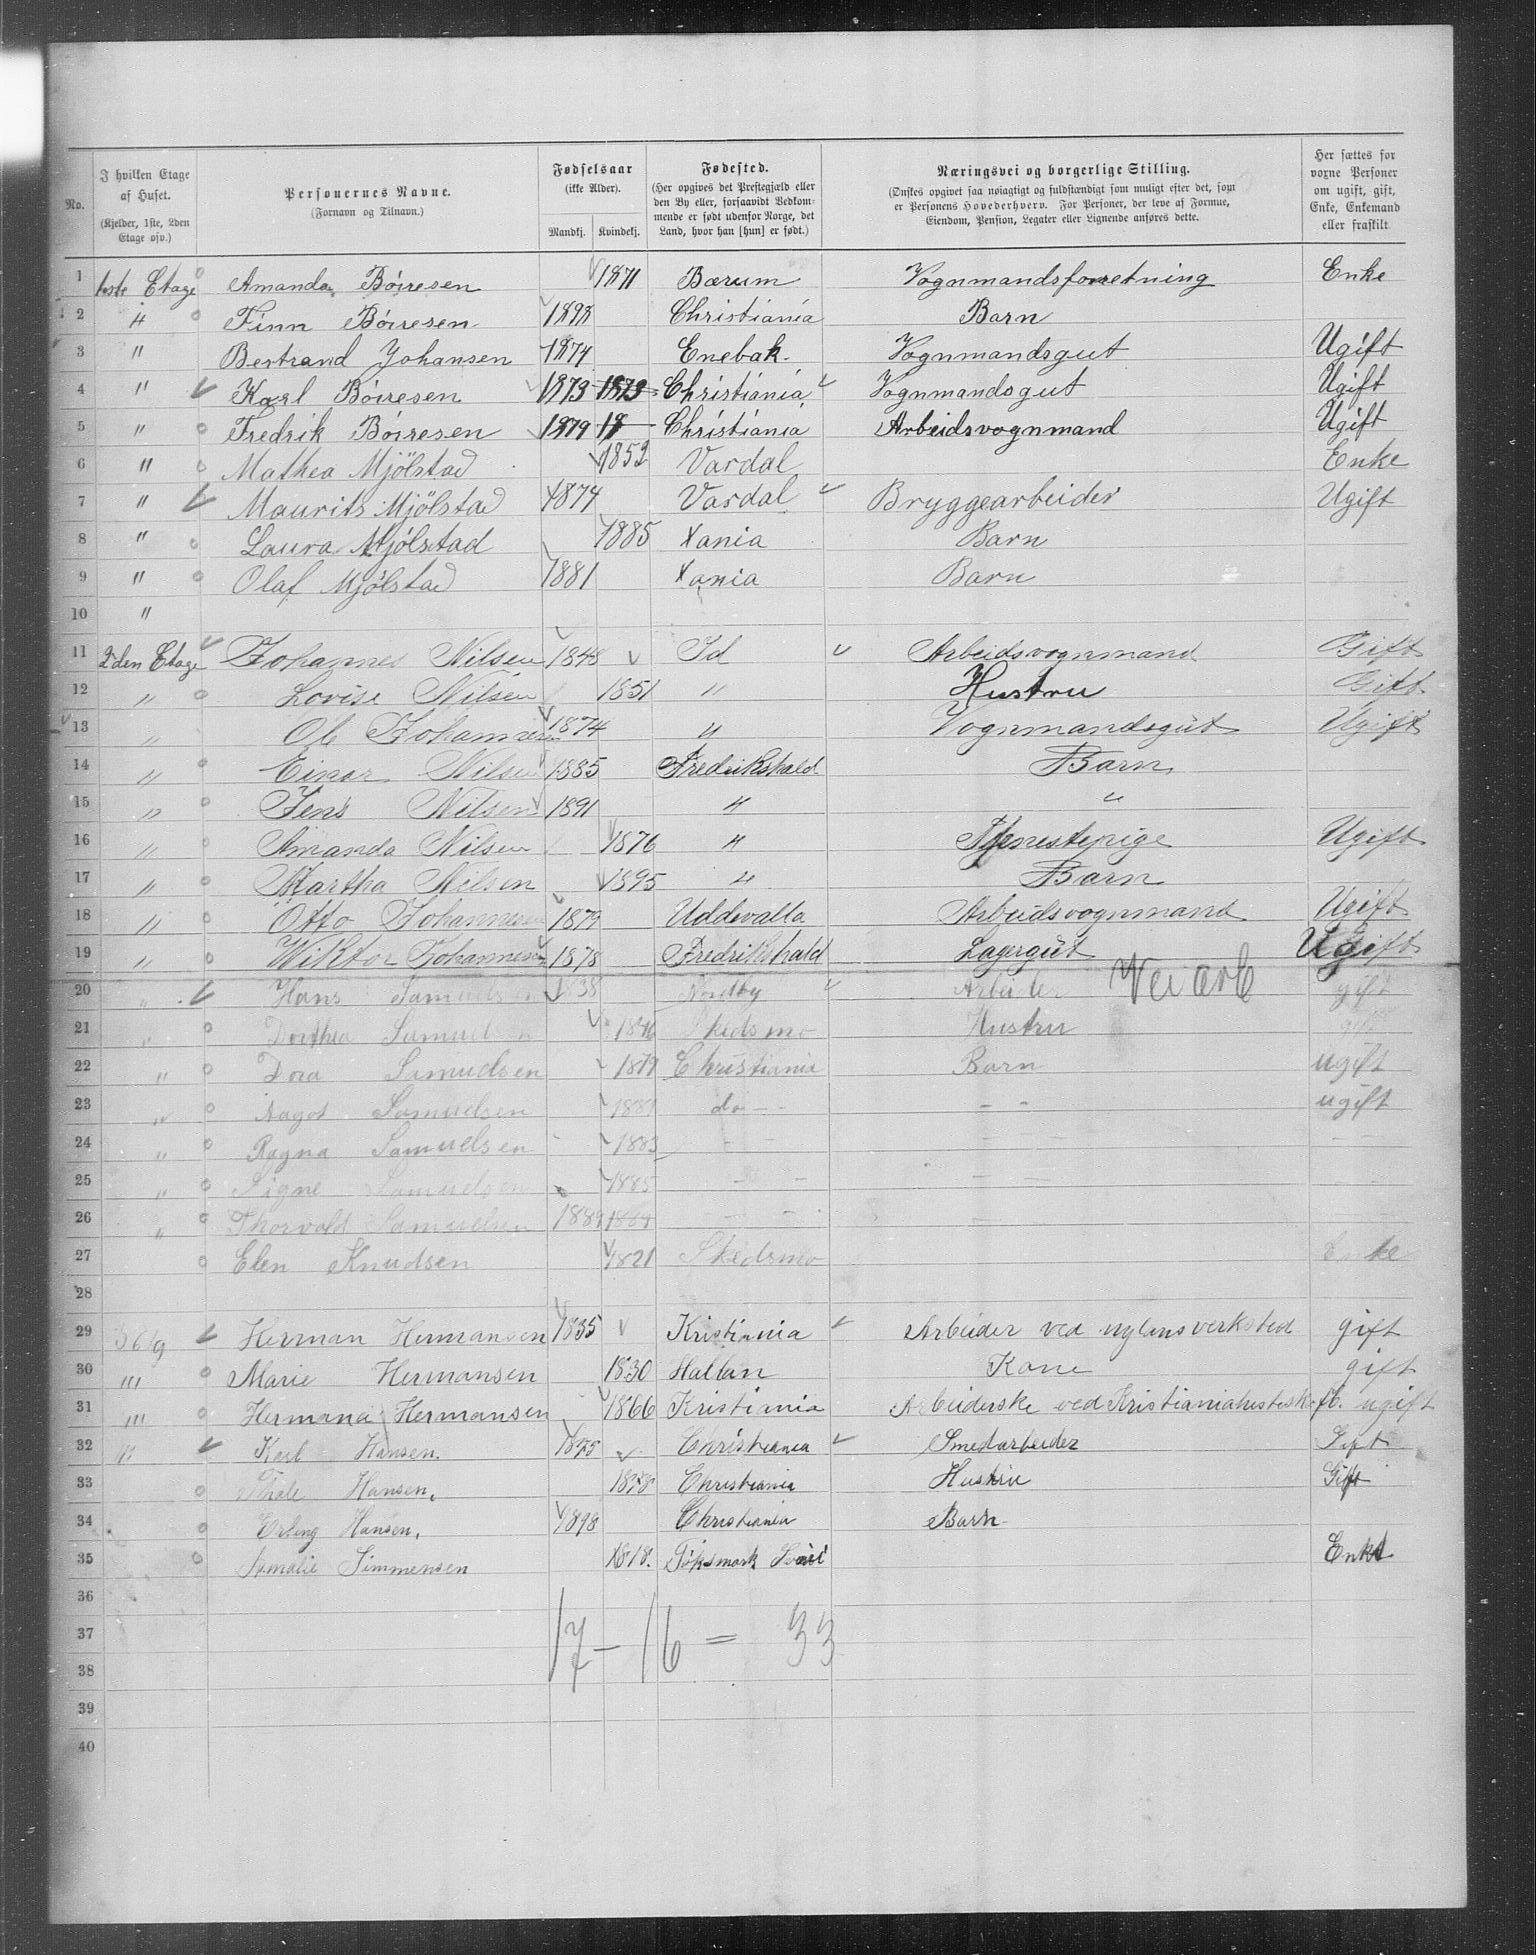 No.
I hvilken Etage af Huset. (Kjelder, 1ste, 2den Etage osv.)
Personernes Navne. (Fornavn og Tilnavn.)
Fødselsaar (ikke Alder).
Mandkj. Kvindekj.
Fødested. (Her opgives det Prestegjæld eller den By eller, forsaavidt Vedkommende er født udenfor Norge, det Land, hvor han [hun] er født.)
Næringsvei og borgerlige Stilling. (Ønskes opgivet saa nøiagtigt og fuldstændigt som muligt efter det, som er Personens Hovederhverv. For Personer, der leve af Formue, Eiendom, Pension, Legater eller Lignende anføres dette.)
Her sættes for vorne Personer om ugift, gift, Enke, Enkemand eller fraskilt
1 1ste Etage Amanda Böiresen 1871 Bærum Vognmandsforretning Enke
2 " Finn Böiresen 1898 Christiania Barn
3 " Bertrand Johansen 1874 Enebak. Vognmandsgut Ugift
4 " Karl Böiresen 1873 1873 Christiania Vognmandsgut Ugift
5 " Fredrik Böiresen 1879 18 Christiania Arbeidsvognmand Ugift
6 " Mathea Mjölstad 1852 Vardal Enke
7 " Maurits Mjölstad 1874 Vardal Bryggearbeider Ugift
8 " Laura Mjölstad 1885 Xania Barn
9 " Olaf Mjölstad 1881 Xania Barn
10 "
11 2den Etage Johannes Nilsen 1848 Id Arbeidsvognmand Gift
12 " Lovise Nilsen 1851 " Hustru Gift
13 " Ole Johannesen 1874 " Vognmandsgut Ugift
14 " Einar Nilsen 1885 Fredrikshald Barn
15 " Jens Nilsen 1891 " "
16 " Amanda Nilsen 1876 " Tjenestepige Ugift
17 " Martha Nilsen 1895 " Barn
18 " Otto Johannesen 1879 Uddevalla Arbeidsvognmand Ugift
19 " Wiktor Johannesen 1878 Fredrikshald Lagergut Ugift
20 " Hans Samuelsen 1838 Nordby Arbeider Veiarb gift
21 " Dorthea Samuelsen 1846 Skedsmo Hustru gift
22 " Dora Samuelsen 1879 Christiania Barn ugift
23 " Aagot Samuelsen 1881 do - - - ugift
24 " Ragna Samuelsen 1883 - - - -
25 " Signe Samuelsen 1885 - - - -
26 " Thorvald Samuelsen 1889 1889 - - -
27 Elen Knudsen 1821 Skedsmo Enke
28
29 Herman Hermansen 1835 Kristiania Arbeider ved nylans verksted gift
30 " Marie Hermansen 1830 Hallan Kone gift
31 " Hermana Hermansen 1866 Kristiania Arbeiderske ved Kristiania ugift
32 " Karl Hansen. 1875 Christiania Smedarbeider Gift
33 Thale Hansen, 1878 Christiania Hustru Gift
34 Erling Hansen, 1898 Christiania Barn
35 Amalie Simmensen 1818. Enke
36
37 17 - 16 = 33
38
39
40